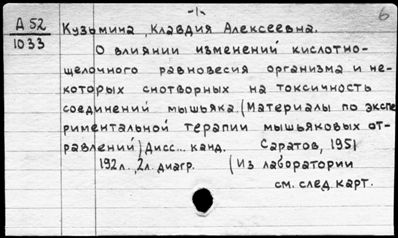 -1-
6
А 52 Кузьмина, Клавдия Алексеевна.
1033
О влиянии изменений кислотно-
щелочного равновесия организма и не-
которых снотворных на токсичность
соединений мышьяка. (Материалы по экспе
риментальной терапии мышьяковых от-
равлений) Дисс... канд. Саратов, 1951
192л., 2л. диагр. (Из лаборатории
см. след. карт.